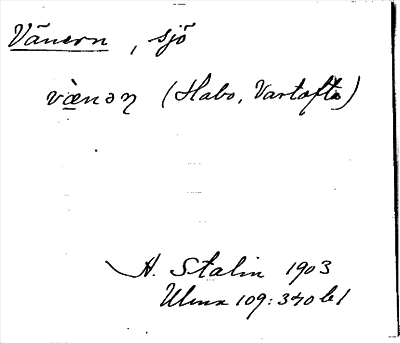 Vänern, sjö
væ̀nəŋ (Habo, Vartofta)
H. Stalin 1903
Ulma 109:340 bl